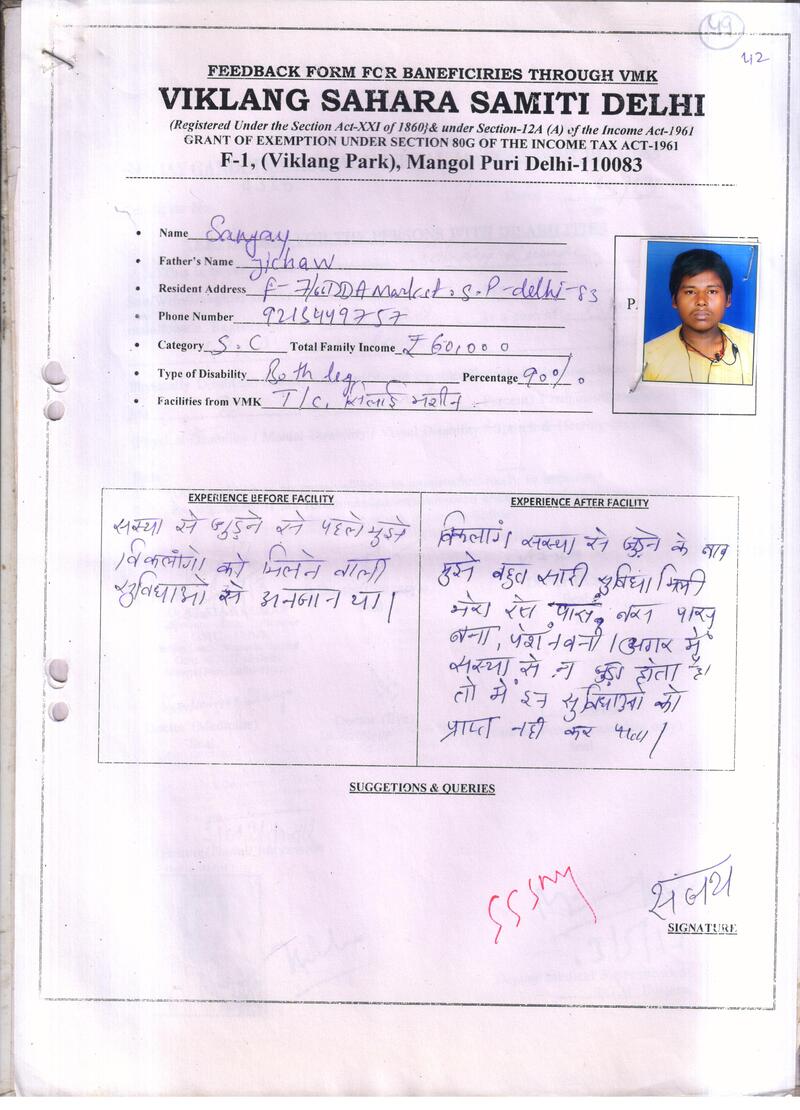 49
42
FEEDBACK FORM FOR BANEFICIRIES THROUGH VMK
VIKLANG SAHARA SAMITI DELHI
(Registered Under the Section Act-XXI of 1860}& under Section-12A (A) of the Income Act-1961
GRANT OF EXEMPTION UNDER SECTION 80G OF THE INCOME TAX ACT-1961
F-1, (Viklang Park), Mangol Puri Delhi-110083
• Name Sanjay
• Father's Name
• Resident Address DDA Market S.P-delhi-83
• Phone Number 9213449757
• Category S.C Total Family Income ₹ 60,000
• Type of Disability Both leg Percentage 90%
• Facilities from VMK T/C, सिलाई मशीन
P.
EXPERIENCE BEFORE FACILITY
सस्था से जुड़ने से पहले मुझे
विकलांगो को मिलने वाली
सुविधाओ से अनजान था।
EXPERIENCE AFTER FACILITY
विकलांग सस्था से जुड़ने के बाद
मुझे बहुत सारी सुविधा मिली
मेरा रेल पास, बस पास
बना, पेंशन बनी। अगर मैं
सस्था से न जुड़ा होता
तो में इन सुविधाओ को
प्राप्त नही कर पाता।
SUGGETIONS & QUERIES
संजय
SIGNATURE